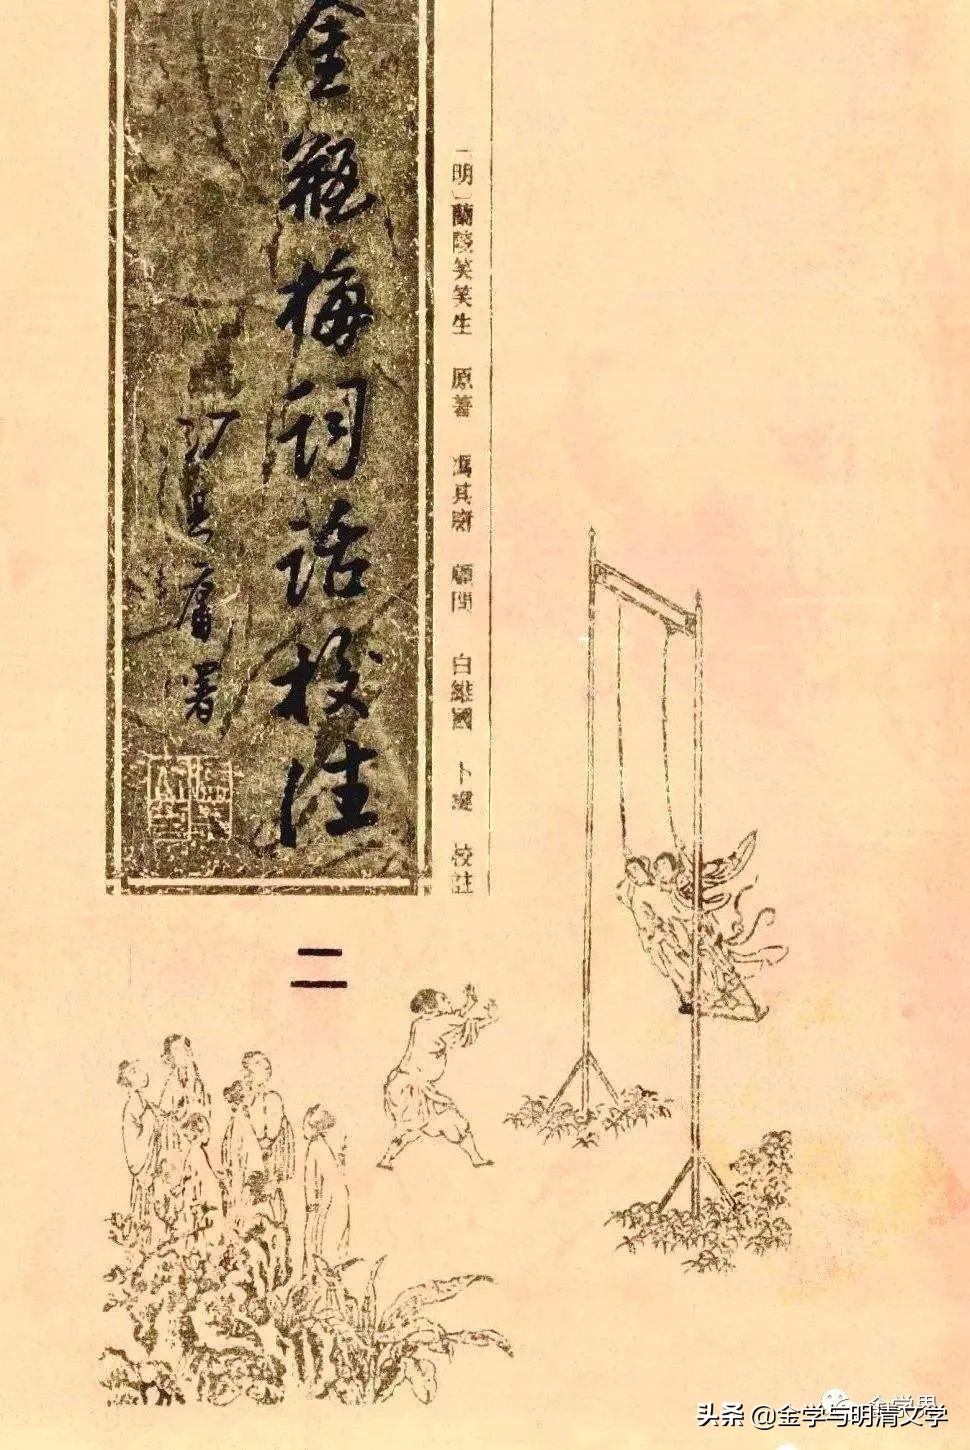 〔明〕蘭陵笑笑生 原著 馮其庸 顧問 白維國 卜鍵 校註
金瓶梅詞話校注
馮其庸署
二
金学界
头条 @金学与明清文学